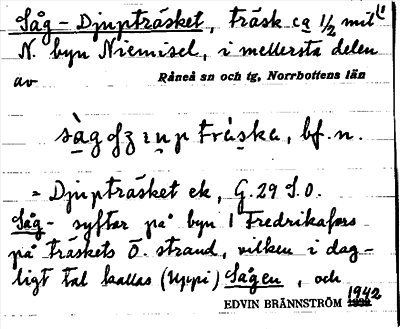 Såg-Djupträsket, träsk ca 1/2 mil
N. byn Niemisel, i mellersta delen
av Råneå sn och tg, Norrbottens län
bf. n.
= Djupträsket ek, G. 29 S.O.
Såg- syftar på byn Fredrikafors
på träskets Ö. strand, vilken i dag-
ligt tal kallas (Uppi) Sågen, och
EDVIN BRÄNNSTRÖM 1942